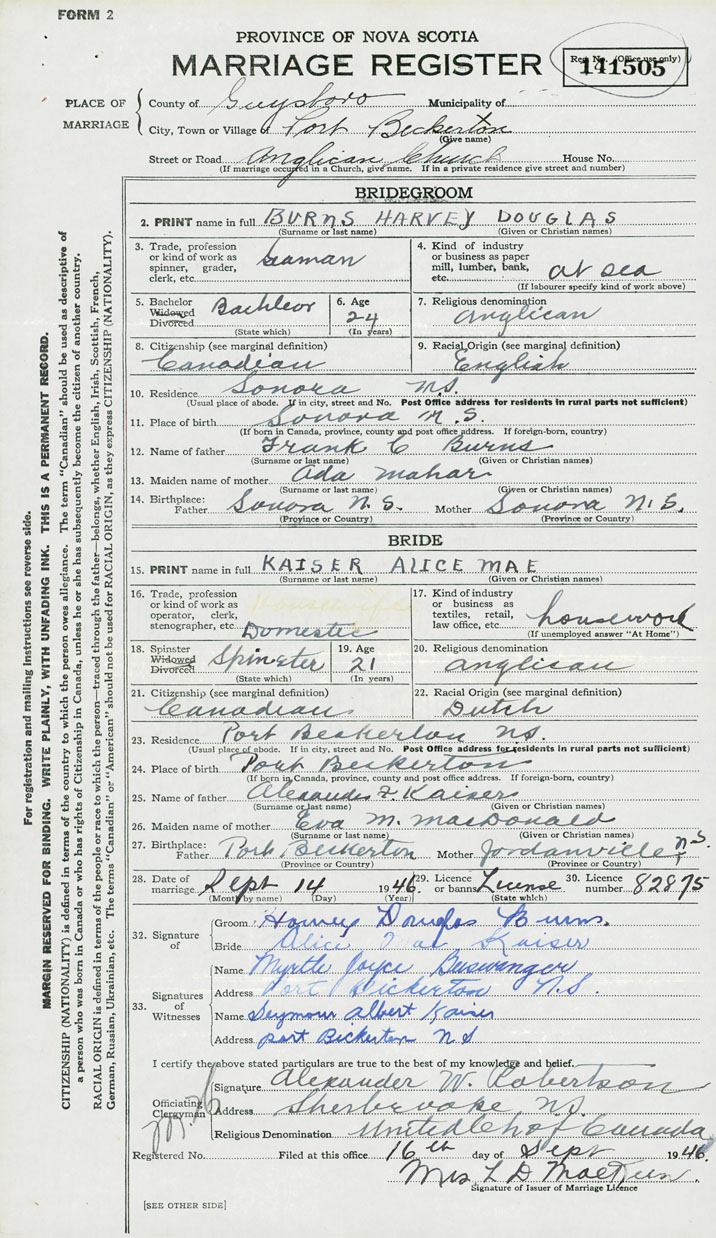 FORM 2
PROVINCE OF NOVA SCOTIA
MARRIAGE REGISTER
Reg. No. (Office use only)
141505
PLACE OF MARRIAGE
County of Guysboro Municipality of
City, Town or Village of Port Beckerton
(Give name)
Street or Road Anglican Church House No.
(If marriage occurred in a Church, give name. If in a private residence give street and number)
BRIDEGROOM
2. PRINT name in full BURNS HARVEY DOUGLAS
(Surname or last name) (Given or Christian names)
3. Trade, profession or kind of work as spinner, grader, clerk, etc. Seaman
4. Kind of industry or business as paper mill, lumber, bank, etc. at sea
(If labourer specify kind of work above)
5. Bachelor Widowed Divorced Bachleor
(State which)
6. Age 24
(In years)
7. Religious denomination
Anglican
8. Citizenship (see marginal definition)
Canadian
9. Racial Origin (see marginal definition)
English
10. Residence Sonora N.S.
(Usual place of abode. If in city, street and No. Post Office address for residents in rural parts not sufficient)
11. Place of birth Sonora N.S.
(If born in Canada, province, county and post office address. If foreign-born, country)
12. Name of father Frank C Burns
(Surname or last name) (Given or Christian names)
13. Maiden name of mother Ada Mahar
(Surname or last name) (Given or Christian names)
14. Birthplace: Father Sonora N.S. Mother Sonora N.S.
(Province or Country) (Province or Country)
BRIDE
15. PRINT name in full KAISER ALICE MAE
(Surname or last name) (Given or Christian names)
16. Trade, profession or kind of work as operator, clerk, stenographer, etc. Domestic
17. Kind of industry or business as textiles, retail, law office, etc. housework
(If unemployed answer "At Home")
18. Spinster Widowed Divorced Spinster
(State which)
19. Age 21
(In years)
20. Religious denomination
Anglican
21. Citizenship (see marginal definition)
Canadian
22. Racial Origin (see marginal definition)
Dutch
23. Residence Port Beckerton N.S.
(Usual place of abode. If in city, street and No. Post Office address for residents in rural parts not sufficient)
24. Place of birth Port Beckerton
(If born in Canada, province, county and post office address. If foreign-born, country)
25. Name of father Alexander F. Kaiser
(Surname or last name) (Given or Christian names)
26. Maiden name of mother Eva M. MacDonald
(Surname or last name) (Given or Christian names)
27. Birthplace: Father Port Beckerton Mother Jordanville N.S.
(Province or Country) (Province or Country)
28. Date of marriage. Sept 14 1946. 29. Licence or banns License 30. Licence number 82875
(Month by name) (Day) (Year) (State which)
32. Signature of
Groom Harvey Douglas Burns.
Bride Alice Mae Kaiser
33. Signatures of Witnesses
Name Myrtle Joyce
Address Port Bickerton N.S.
Name Seymour Albert Kaiser
Address Port Bickerton N S
I certify the above stated particulars are true to the best of my knowledge and belief.
Officiating Clergyman
Signature Alexander W. Robertson
Address Sherbrooke N.S.
Religious Denomination United Ch of Canada
Registered No. Filed at this office 16th day of Sept 1946.
Mrs L D
Signature of Issuer of Marriage Licence
[SEE OTHER SIDE]
For registration and mailing instructions see reverse side.
MARGIN RESERVED FOR BINDING. WRITE PLAINLY, WITH UNFADING INK. THIS IS A PERMANENT RECORD.
CITIZENSHIP (NATIONALITY) is defined in terms of the country to which the person owes allegiance. The term "Canadian" should be used as descriptive of
a person who was born in Canada or who has rights of Citizenship in Canada, unless he or she has subsequently become the citizen of another country.
RACIAL ORIGIN is defined in terms of the people or race to which the person—traced through the father—belongs, whether English, Irish, Scottish, French,
German, Russian, Ukrainian, etc. The terms "Canadian" or "American" should not be used for RACIAL ORIGIN, as they express CITIZENSHIP (NATIONALITY).